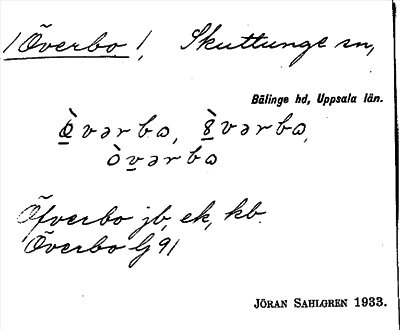 /Överbo/, Skuttunge sn,
Bälinge hd, Uppsala län.
ö̀vərbω, 8̀vərbω,
òvərbω
Öfverbo jb, ek, kb.
Överbo Lj 91
JÖRAN SAHLGREN 1933.